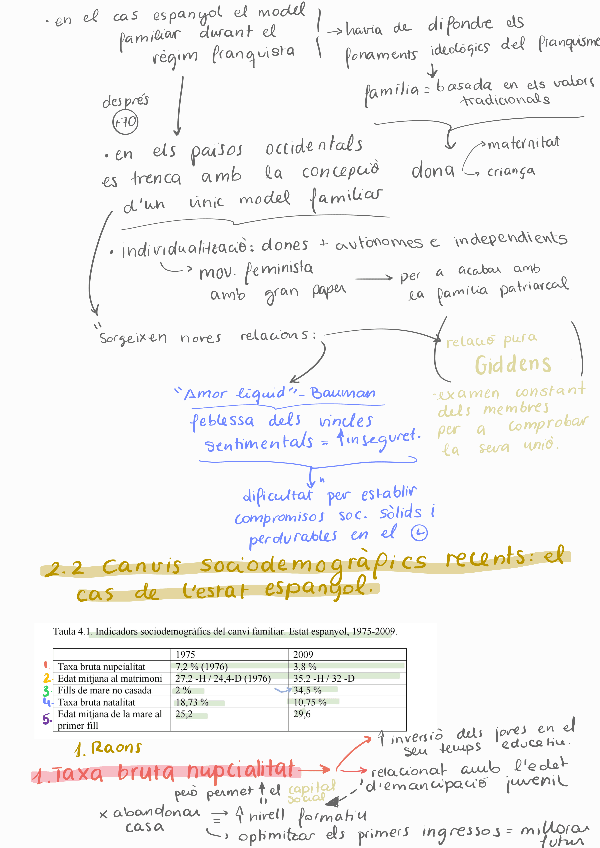 · en el cas espanyol el model
familiar durant el
règim franquista
→ havia de difondre els
fonaments ideològics del franquisme
família = basada en els valors
tradicionals
després
+70
· en els països occidentals
es trenca amb la concepció
d'un únic model familiar
dona
maternitat
criança
· Individualització: dones + autònomes e independents
mov. feminista
amb gran paper
→ per a acabar amb
la família patriarcal
"Sorgeixen noves relacions:
relació pura
Giddens
-examen constant
dels membres
per a comprobar
la seva unió.
"Amor líquid" - Bauman
feblessa dels vincles
sentimentals = ↑inseguret.
dificultat per establir
compromisos soc. sòlids i
perdurables en el
2.2 Canvis sociodemogràfics recents: el
cas de l'estat espanyol.
Taula 4.1. Indicadors sociodemogràfics del canvi familiar. Estat espanyol, 1975-2009.
1975 2009
1 Taxa bruta nupcialitat 7,2 % (1976) 3,8 %
2. Edat mitjana al matrimoni 27,2 -H / 24,4-D (1976) 35,2 -H / 32 -D
3 Fills de mare no casada 2 % 34,5 %
4. Taxa bruta natalitat 18,73 % 10,75 %
5. Edat mitjana de la mare al 25,2 29,6
primer fill
1. Raons
1. Taxa bruta nupcialitat →
↑ inversió dels joves en el
seu temps educatiu.
relacionat amb l'edet
d'emancipació juvenil
però permet ↑ el capital
social
x abandonar
casa
= ↑ nivell formatiu
optimitzar els primers ingressos = millorar
futur